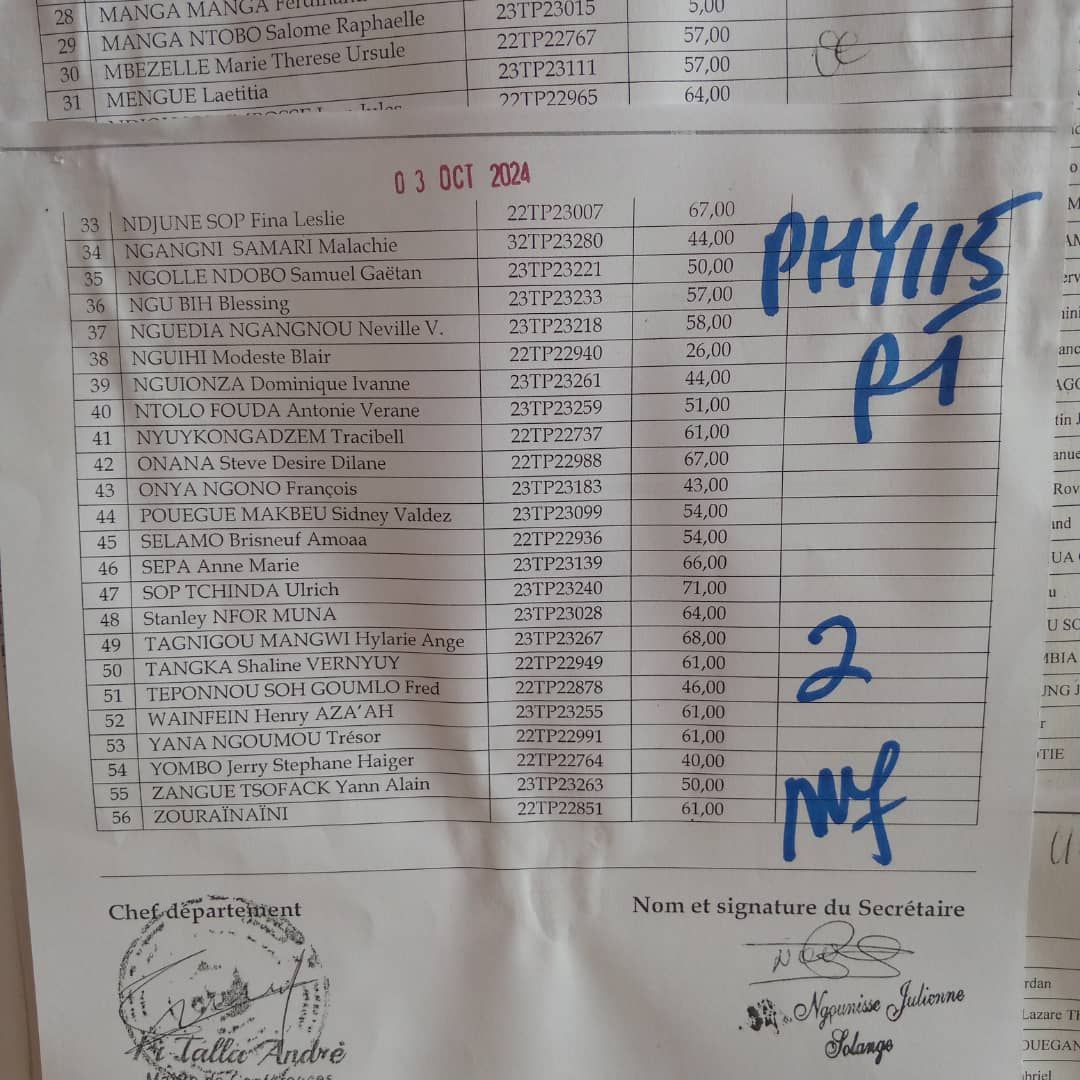 28 MANGA MANGA 23TP23015 5,00
29 MANGA NTOBO Salome Raphaelle 22TP22767 57,00
30 MBEZELLE Marie Therese Ursule 23TP23111 57,00
31 MENGUE Laetitia 22TP22965 64,00
03 OCT 2024
33 NDJUNE SOP Fina Leslie 22TP23007 67,00
34 NGANGNI SAMARI Malachie 32TP23280 44,00
35 NGOLLE NDOBO Samuel Gaëtan 23TP23221 50,00
36 NGU BIH Blessing 23TP23233 57,00
PHY115
37 NGUEDIA NGANGNOU Neville V. 23TP23218 58,00
38 NGUIHI Modeste Blair 22TP22940 26,00
39 NGUIONZA Dominique Ivanne 23TP23261 44,00
P1
40 NTOLO FOUDA Antonie Verane 23TP23259 51,00
41 NYUYKONGADZEM Tracibell 22TP22737 61,00
42 ONANA Steve Desire Dilane 22TP22988 67,00
43 ONYA NGONO François 23TP23183 43,00
44 POUEGUE MAKBEU Sidney Valdez 23TP23099 54,00
45 SELAMO Brisneuf Amoaa 22TP22936 54,00
46 SEPA Anne Marie 23TP23139 66,00
47 SOP TCHINDA Ulrich 23TP23240 71,00
48 Stanley NFOR MUNA 23TP23028 64,00
49 TAGNIGOU MANGWI Hylarie Ange 23TP23267 68,00
50 TANGKA Shaline VERNYUY 22TP22949 61,00
2
51 TEPONNOU SOH GOUMLO Fred 22TP22878 46,00
52 WAINFEIN Henry AZA'AH 23TP23255 61,00
53 YANA NGOUMOU Trésor 22TP22991 61,00
54 YOMBO Jerry Stephane Haiger 22TP22764 40,00
55 ZANGUE TSOFACK Yann Alain 23TP23263 50,00
56 ZOURAÏNAÏNI 22TP22851 61,00
Chef département
Nom et signature du Secrétaire
Ngounisse Julionne
Solange
Talla André